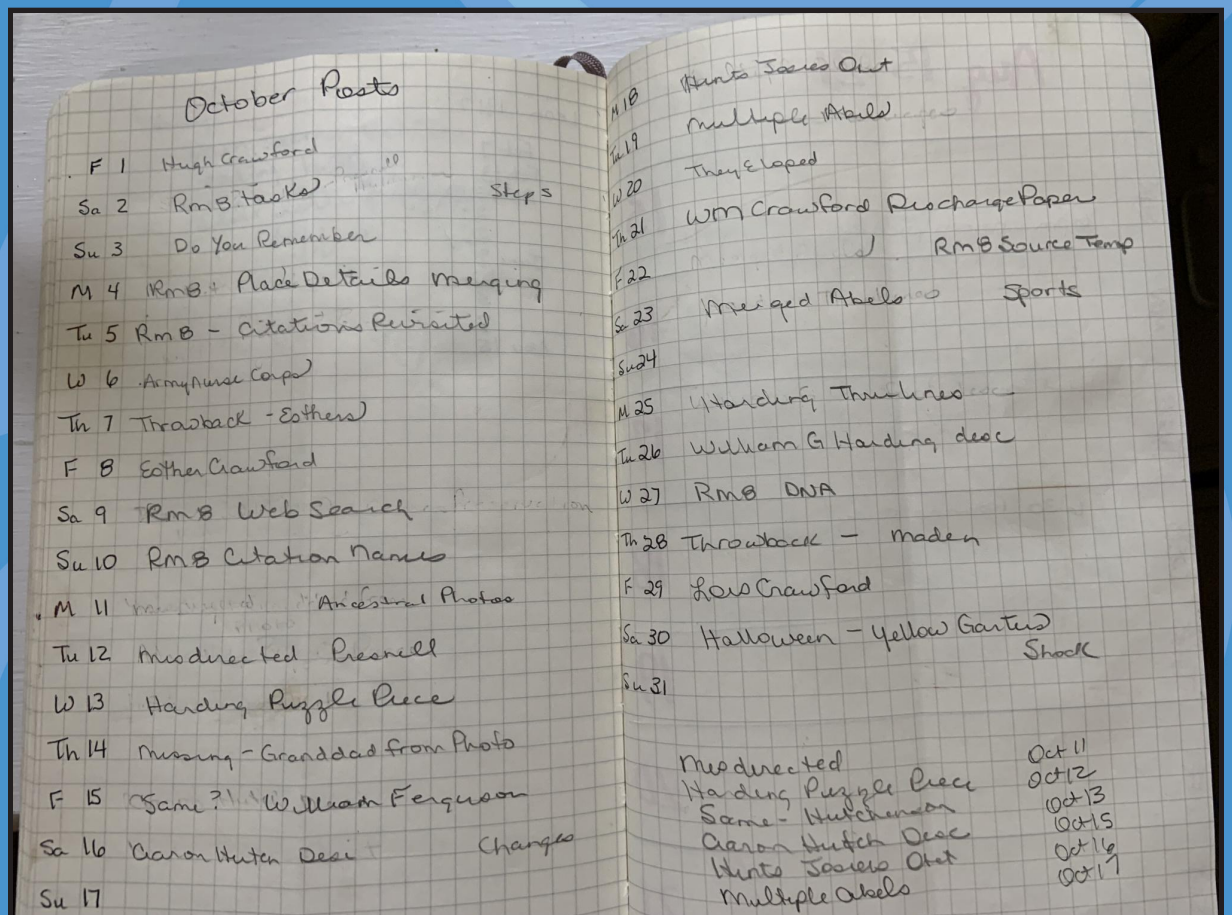 October Posts
F 1 Hugh Crawford
Sa 2 Rm8 tasks Steps
Su 3 Do You Remember
M 4 Rm8 Place Details merging
Tu 5 Rm8 - Citations Revisited
W 6 Army Nurse Corps
Th 7 Throwback - Esthers
F 8 Esther Crawford
Sa 9 Rm8 Web Search
Su 10 Rm8 Citation names
M 11 Ancestral Photos
Tu 12 Misdirected Presnell
W 13 Harding Puzzle Piece
Th 14 Missing - Granddad from Photo
F 15 Same?! William Ferguson
Sa 16 Aaron Hutch Changes
Su 17
M 18 Hints Out
Tu 19 Multiple Abels
W 20 They Eloped
Th 21 Wm Crawford Discharge Paper
F 22 Rm8 Source Temp
Sa 23 Merged Abels Sports
Su 24
M 25 Harding Thrulines
Tu 26 William G Harding desc
W 27 Rm8 DNA
Th 28 Throwback - maden
F 29 Crawford
Sa 30 Halloween - Yellow Garters
Shock
Su 31
Misdirected Oct 11
Harding Puzzle Piece Oct 12
Same - Hutchinson Oct 13
Aaron Hutch Desc Oct 15
Hints Oct 16
Multiple Abels Oct 17